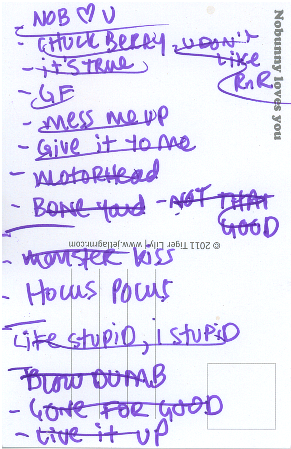 - NOB ♡ U
- CHUCK BERRY, U DON'T
LIKE
RnR
- it'S TRUE
- GF
- MESS ME UP
- Give it to Me
- MOTORHEAD
- BONE YARD - NOT THAT
GOOD
- monster kiss
- Hocus Pocus
Life STUPiD, i STUPiD
BLOW DUMB
- GONE FOR GOOD
- Give it UP
Nobunny loves you
© 2011 Tiger Lily | www.jellagrn.com